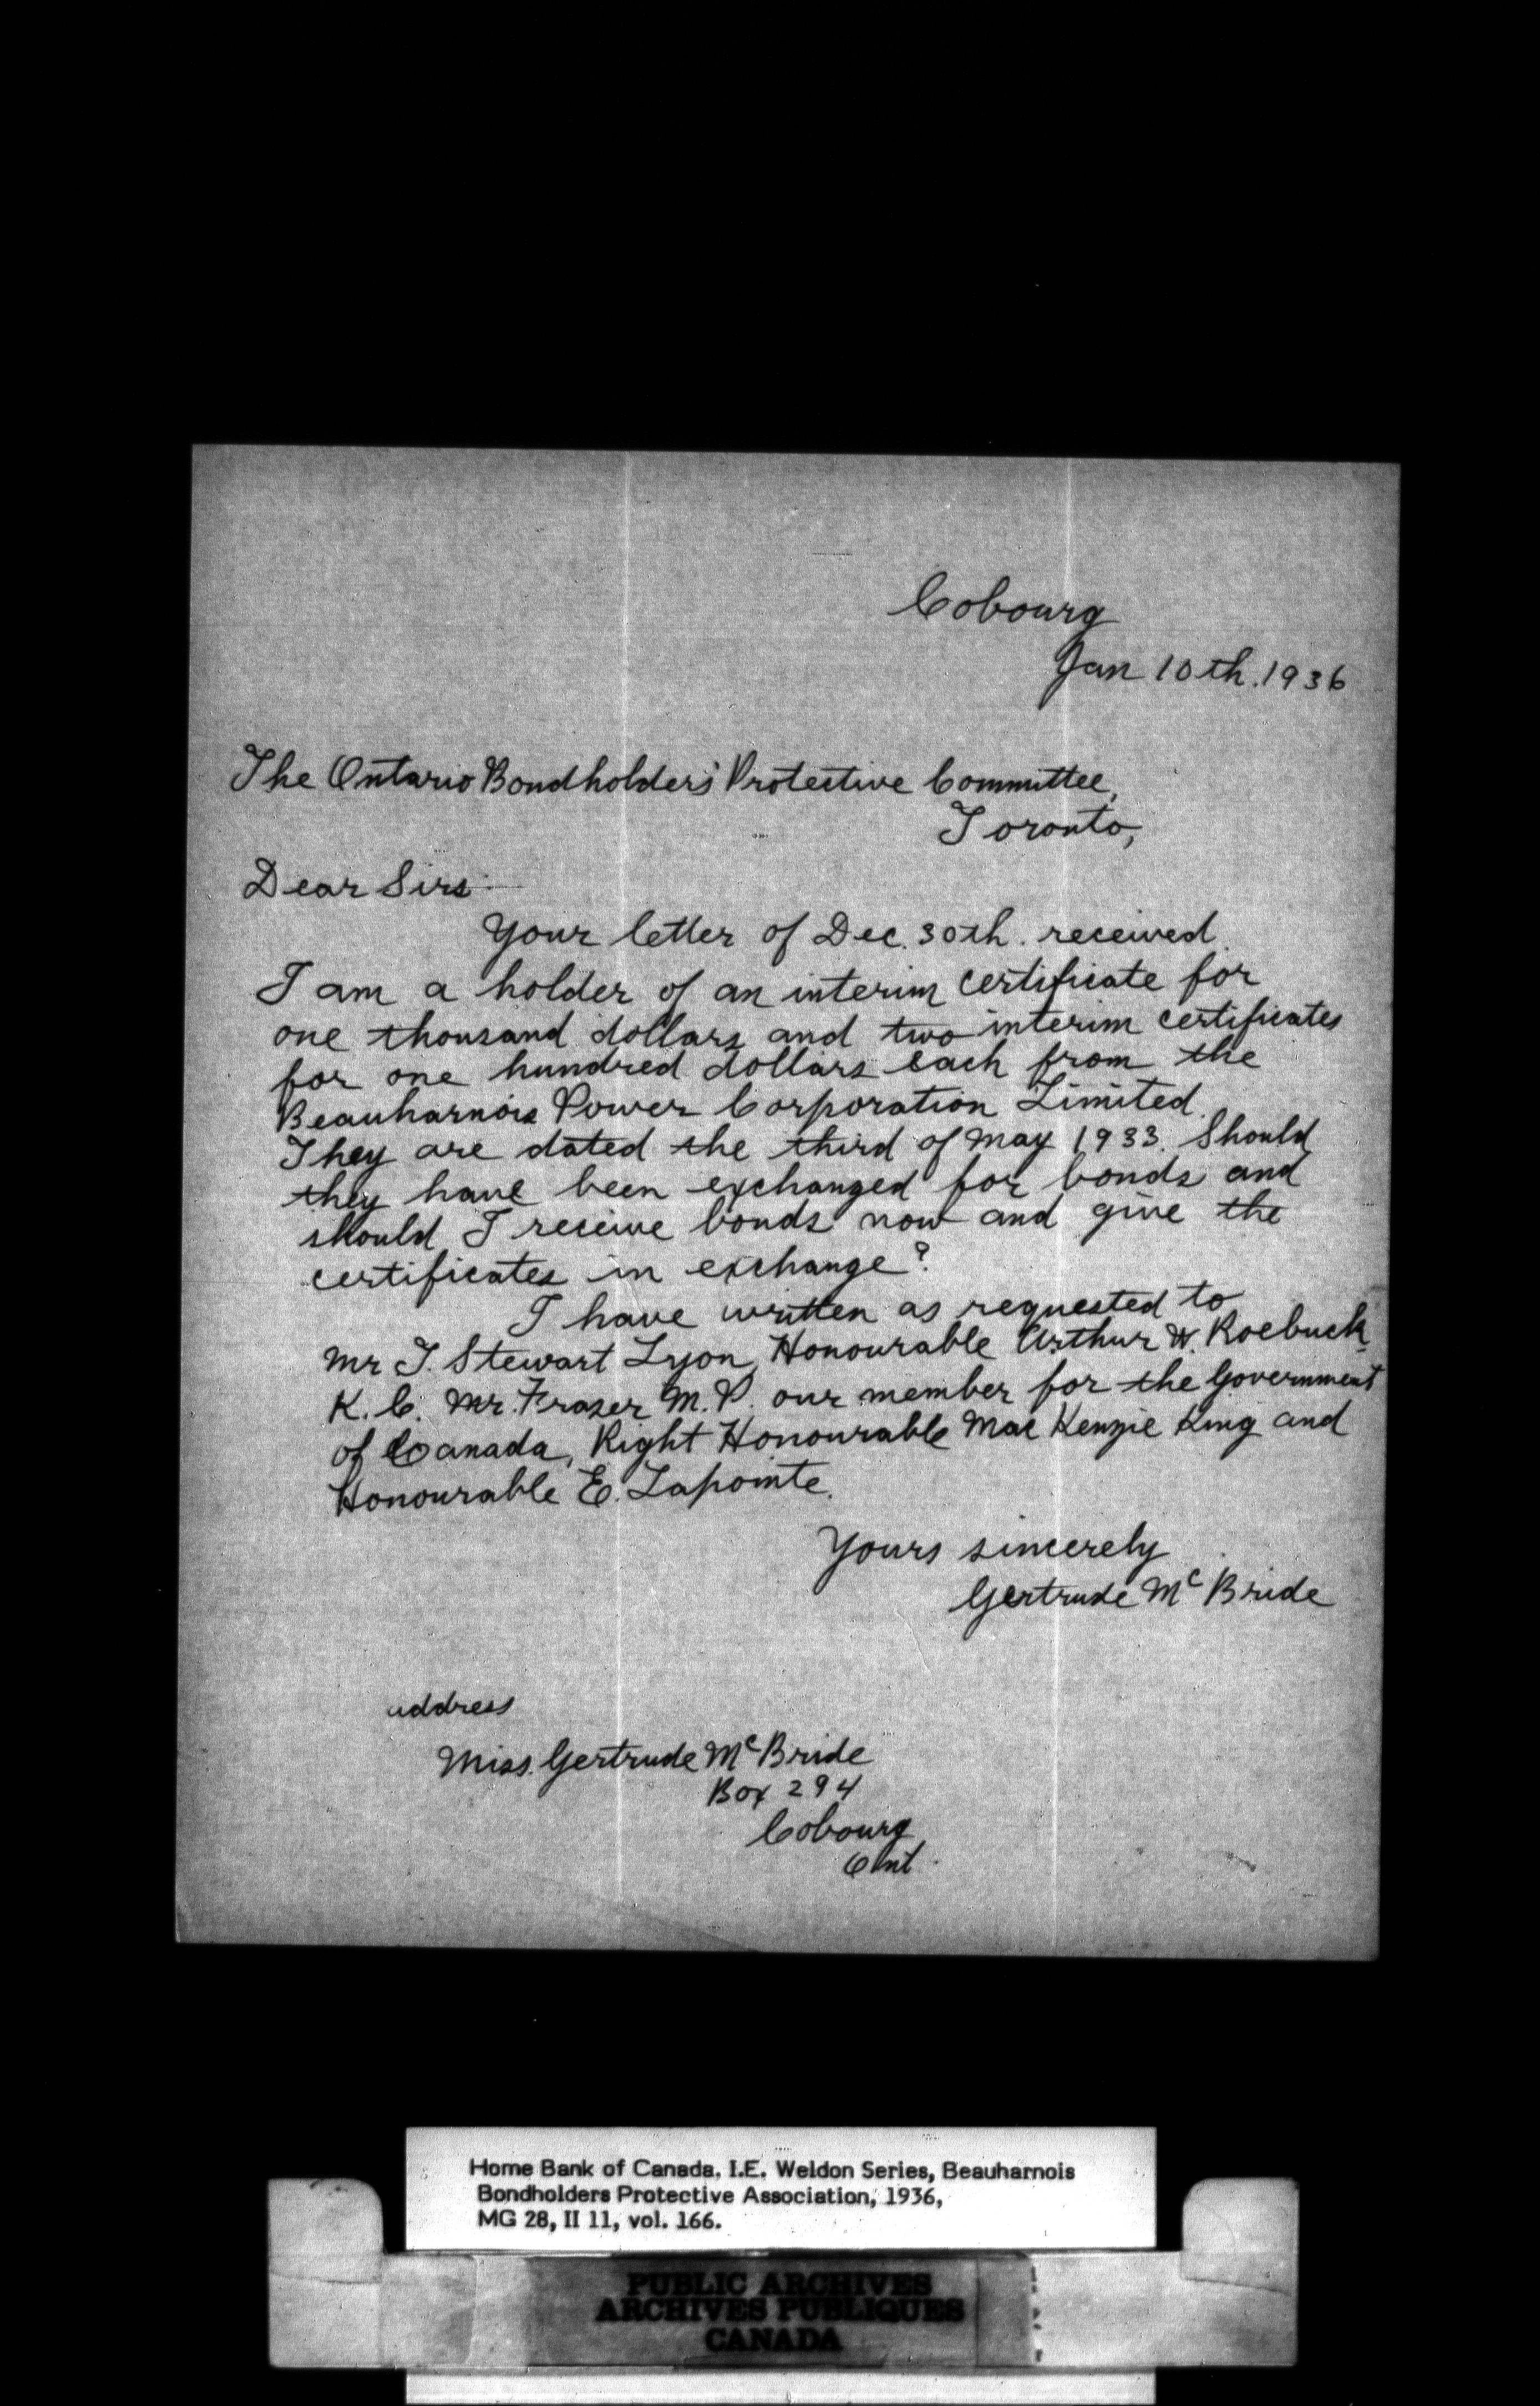 Cobourg
Jan 10th. 1936
The Ontario Bondholders' Protective Committee,
Toronto,
Dear Sirs:—
Your letter of Dec. 30th. received.
I am a holder of an interim certificate for
one thousand dollars and two interim certificates
for one hundred dollars each from the
Beauharnois Power Corporation Limited.
They are dated the third of May 1933. Should
they have been exchanged for bonds and
should I receive bonds now and give the
certificates in exchange?
I have written as requested to
Mr T. Stewart Lyon, Honourable Arthur W. Roebuck
K.C. Mr. Fraser M.P. our member for the Government
of Canada, Right Honourable Mac Kenzie King and
Honourable E. Lapointe.
Yours sincerely
Gertrude McBride
address
Miss. Gertrude McBride
Box 294
Cobourg
Ont.
Home Bank of Canada. I.E. Weldon Series, Beauharnois
Bondholders Protective Association, 1936,
MG 28, II 11, vol. 166.
PUBLIC ARCHIVES
ARCHIVES PUBLIQUES
CANADA